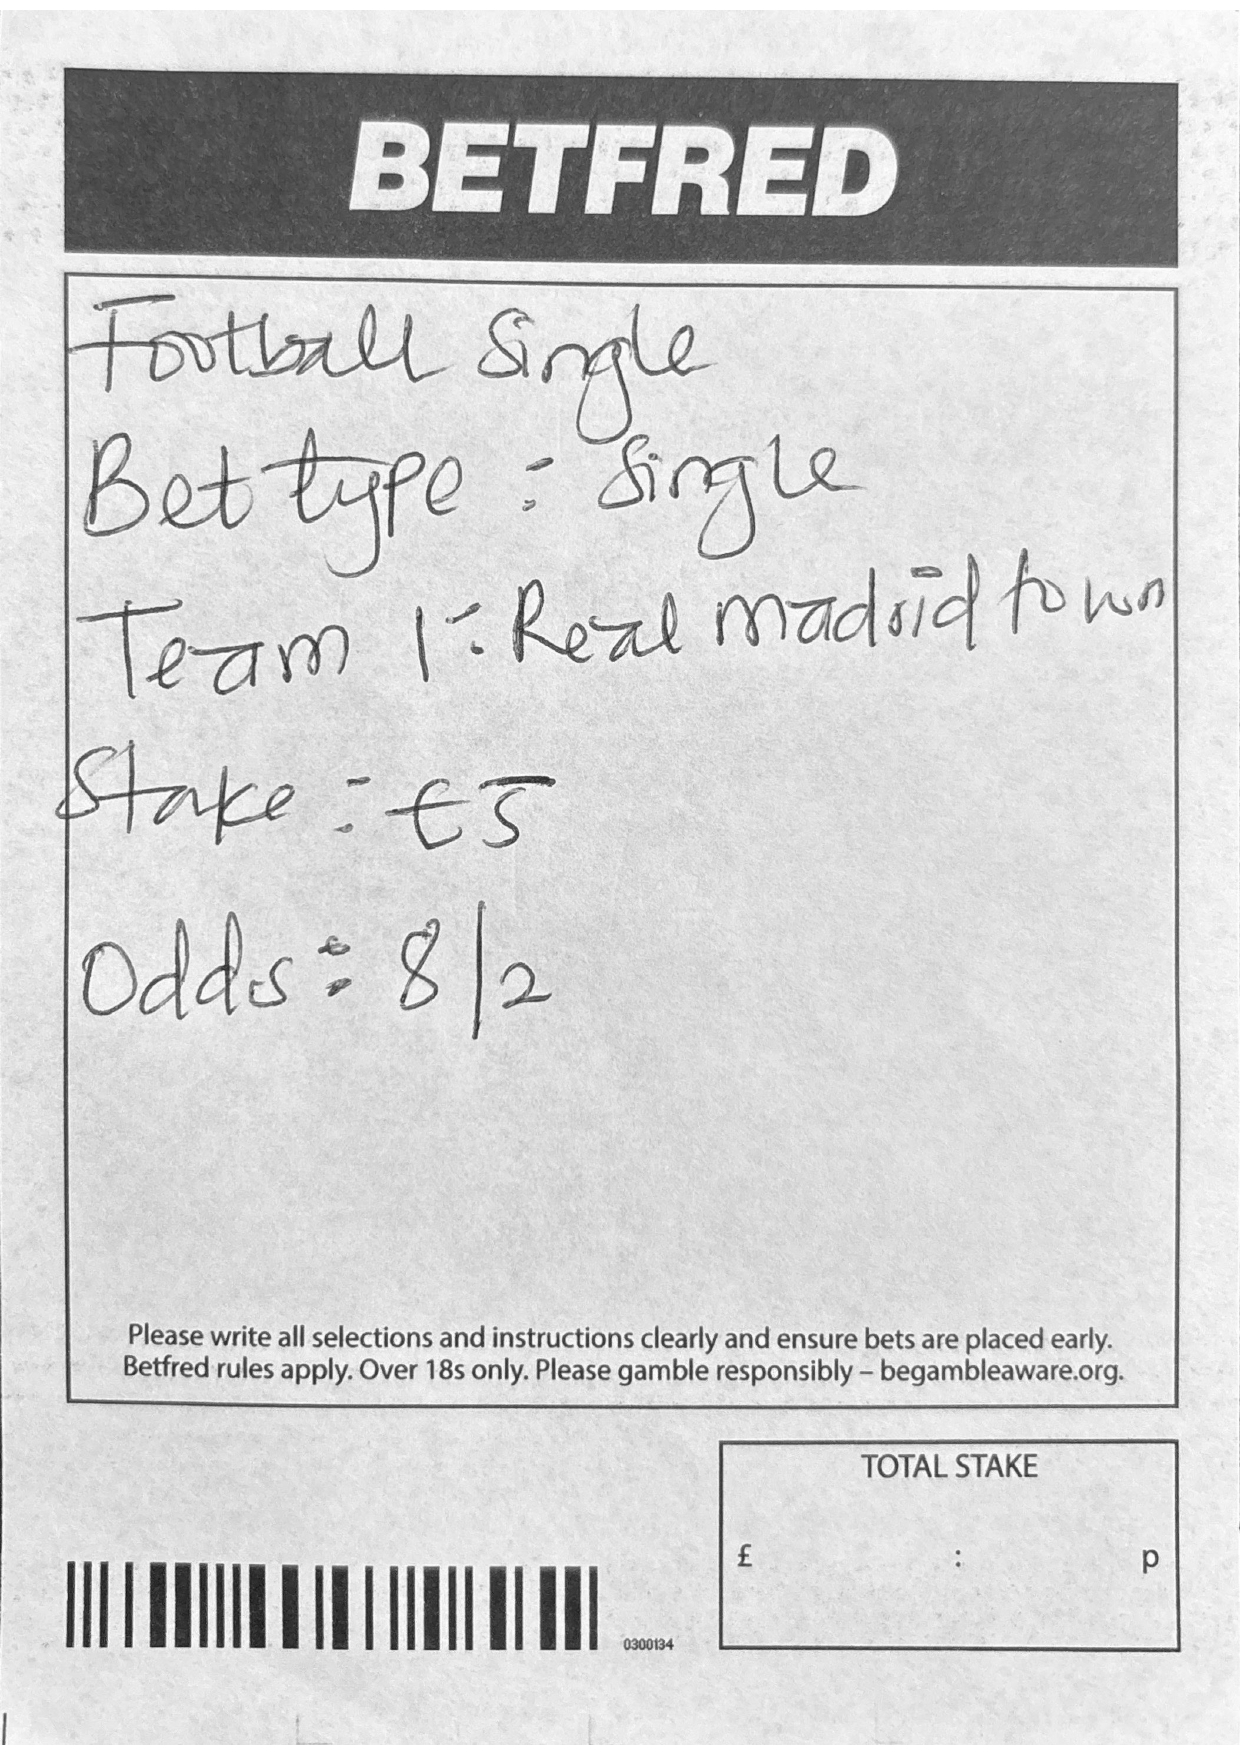 BETFRED
Football Single
Bet type : Single
Team 1 : Real madrid town
Stake : £5
Odds : 8/2
Please write all selections and instructions clearly and ensure bets are placed early.
Betfred rules apply. Over 18s only. Please gamble responsibly – begambleaware.org.
TOTAL STAKE
£ : p
0300134